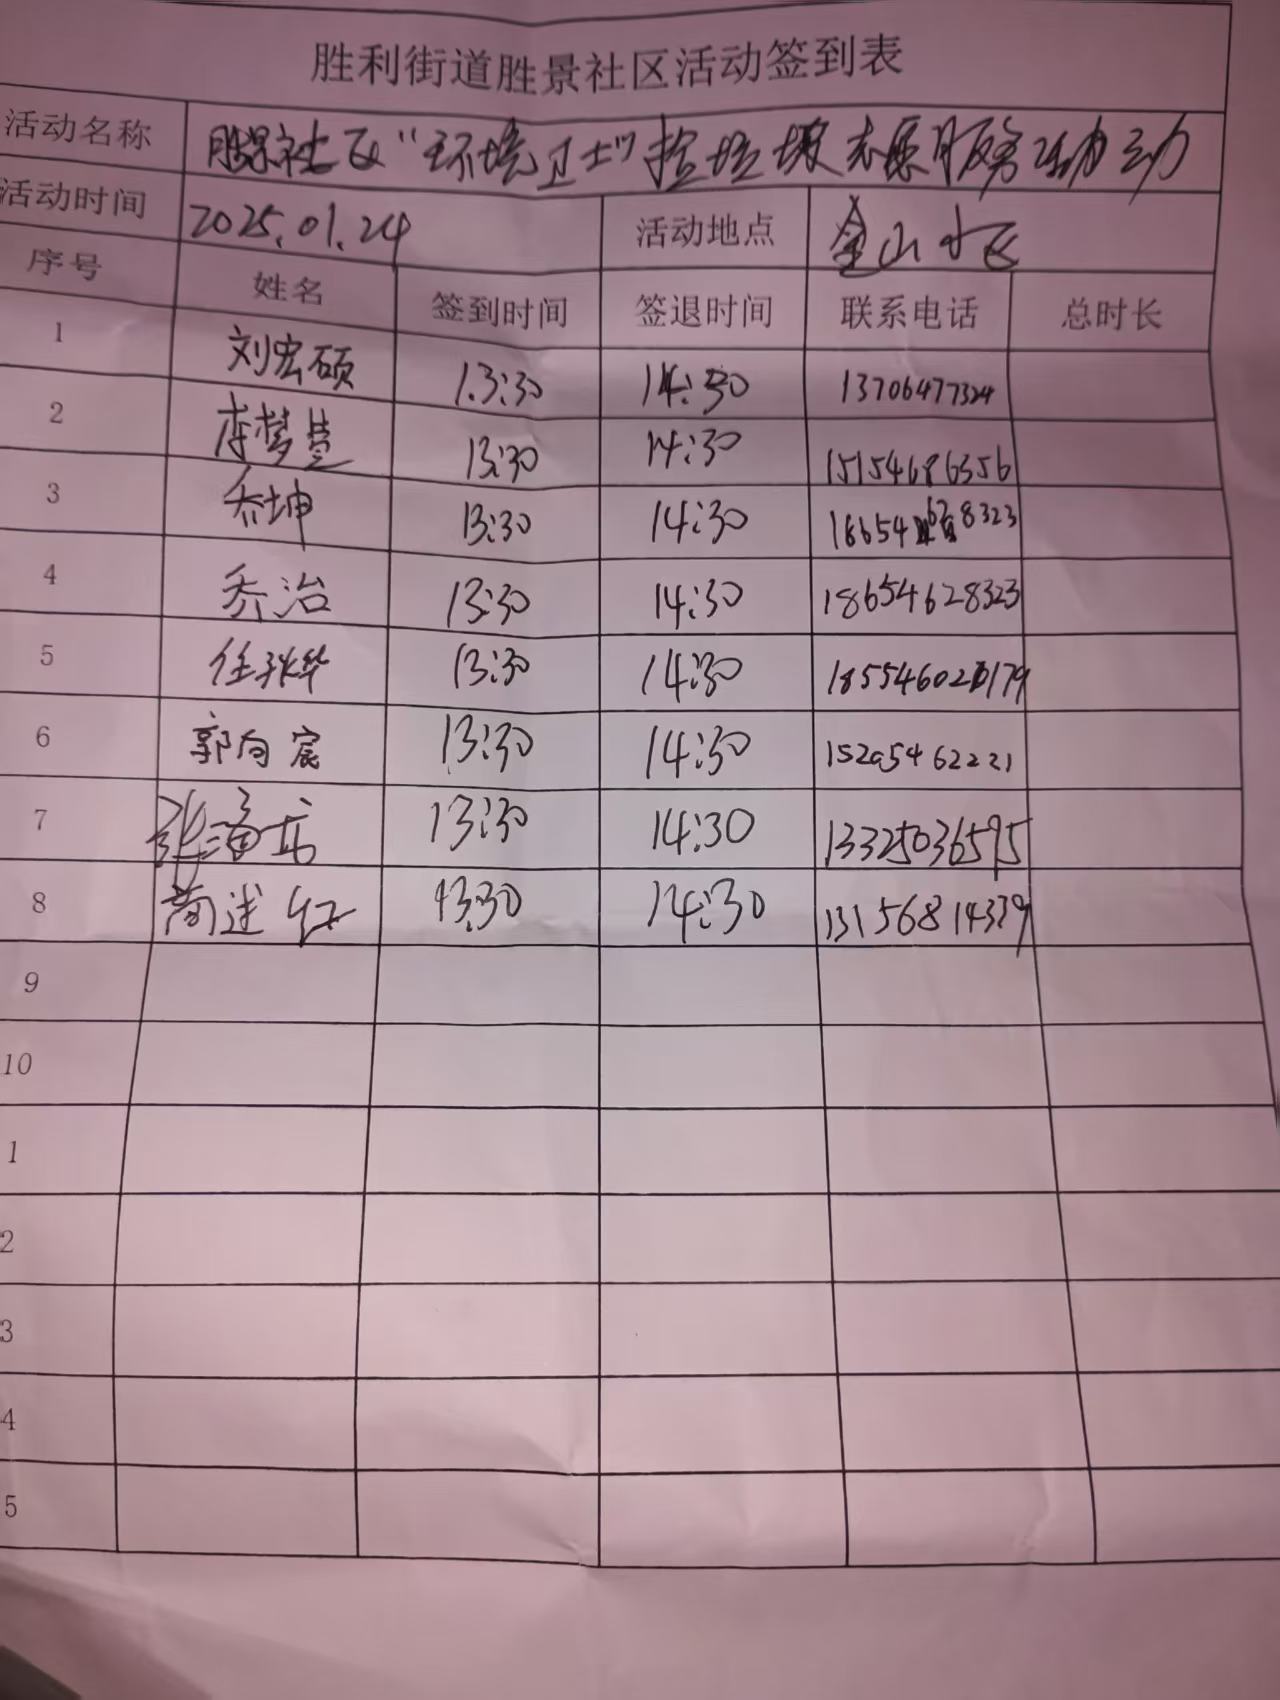 胜利街道胜景社区活动签到表
活动名称 胜景社区“环境卫士”捡垃圾志愿服务活动
活动时间 2025.01.24 活动地点 金山小区
序号 姓名 签到时间 签退时间 联系电话 总时长
1 刘宏硕 13:30 14:30 13706477324
2 李梦萱 13:30 14:30 15154686356
3 乔坤 13:30 14:30 18654628323
4 乔治 13:30 14:30 18654628323
5 13:30 14:30
6 郭向宸 13:30 14:30 15205462221
7 13:30 14:30 13325036595
8 商述红 13:30 14:30 13156814379
9
10
1
2
3
4
5